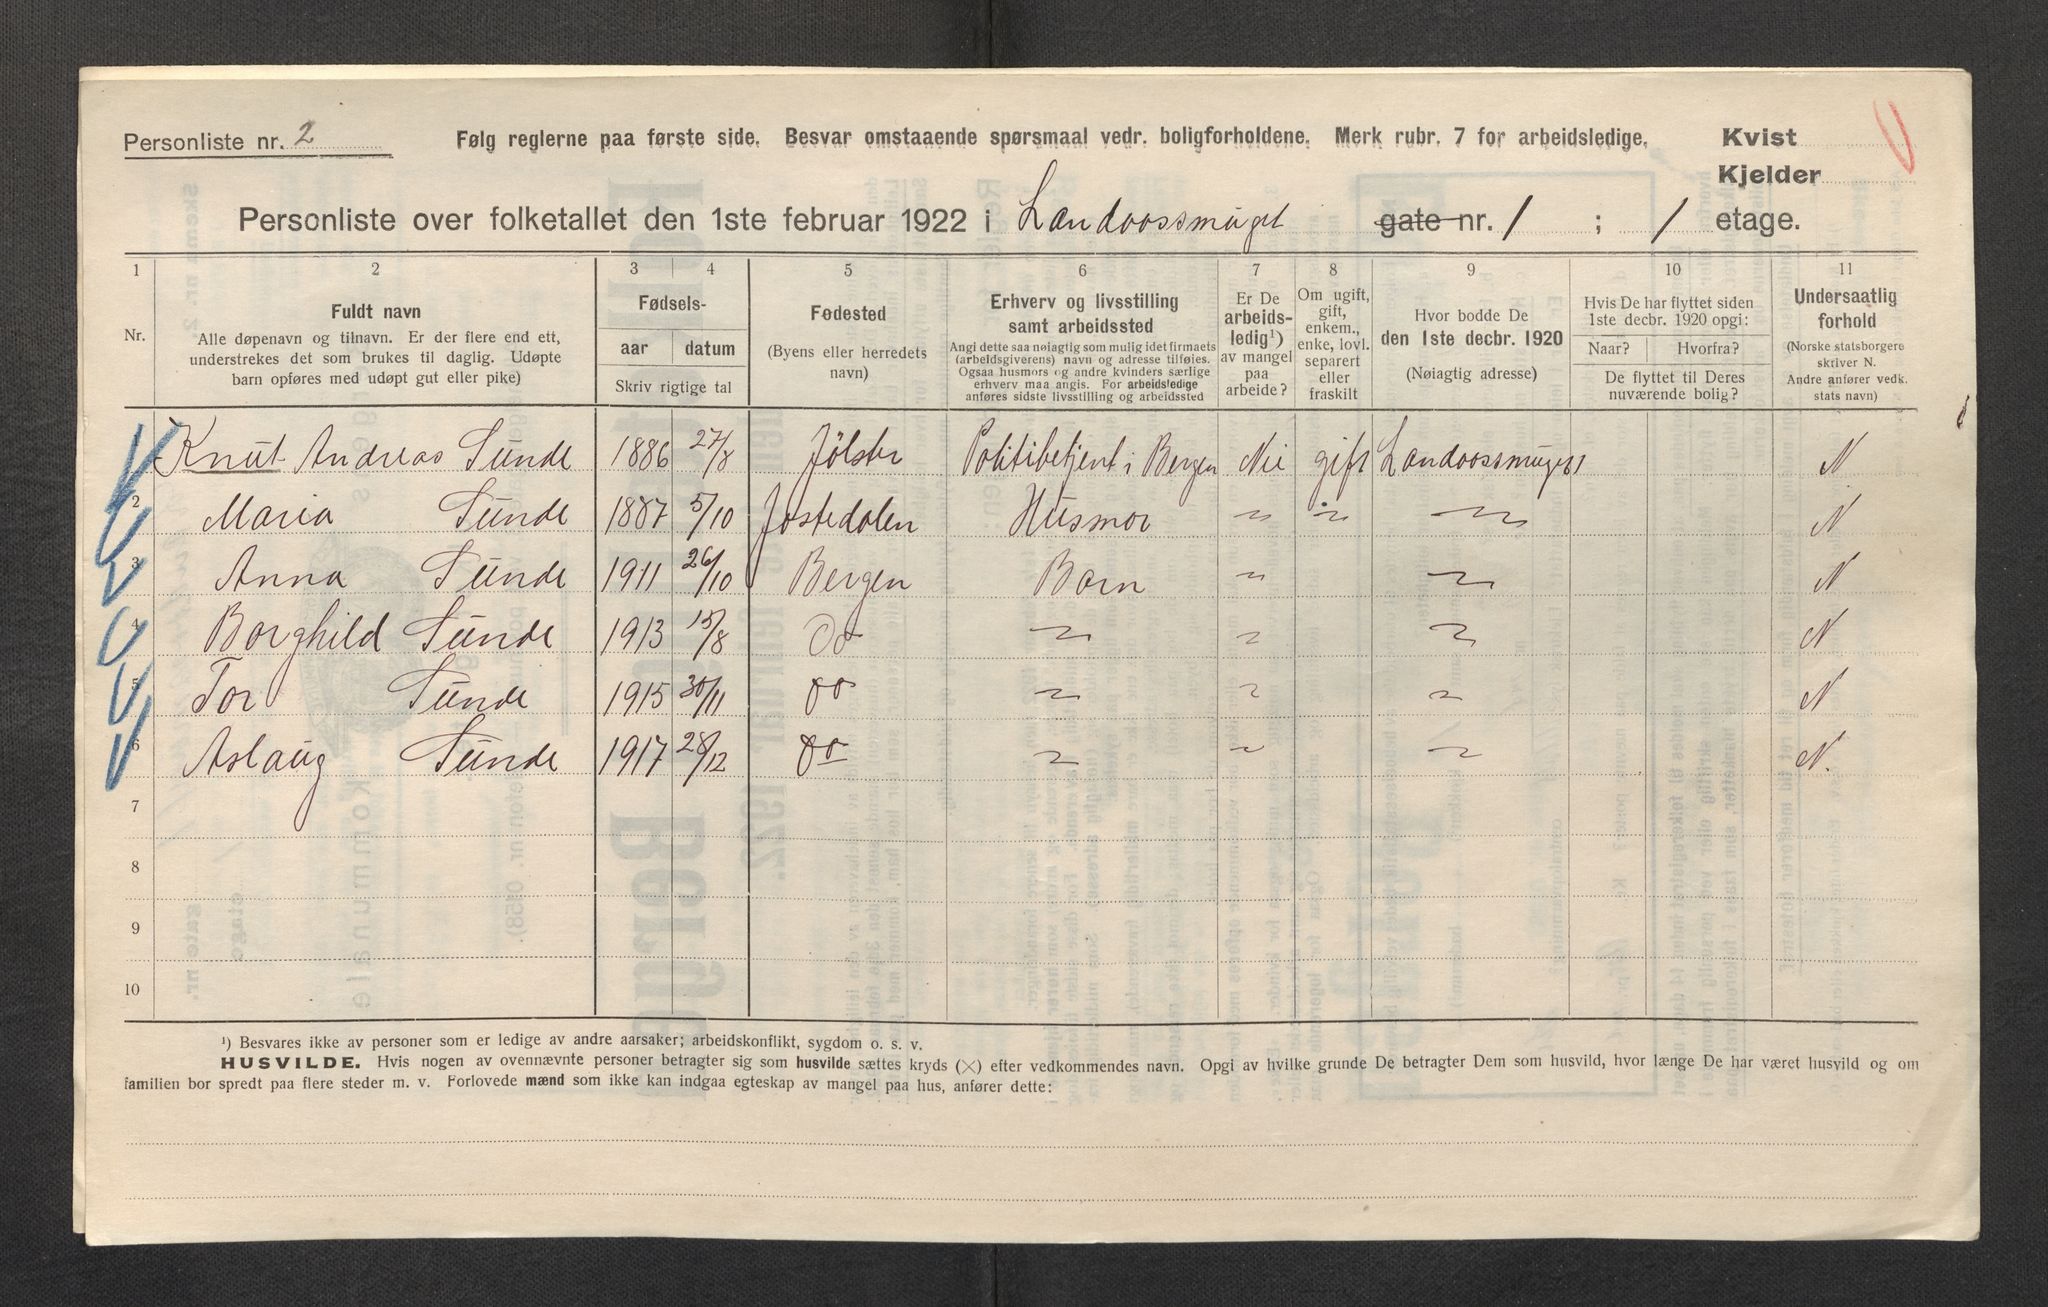 Personliste nr. 2 Følg reglerne paa første side. Besvar omstaaende spørsmaal vedr. boligforholdene. Merk rubr. 7 for arbeidsledige. Kvist
Kjelder
Personliste over folketallet den 1ste februar 1922 i Landaassmuget gate nr. 1 ; 1 etage.
1 2 3 4 5 6 7 8 9 10 11
Nr.
Fuldt navn
Alle døpenavn og tilnavn. Er der flere end ett,
understrekes det som brukes til daglig. Udøpte
barn opføres med udøpt gut eller pike)
Fødsels-
aar datum
Skriv rigtige tal
Fødested
(Byens eller herredets
navn)
Erhverv og livsstilling
samt arbeidssted
Angi dette saa nøiagtig som mulig idet firmaets
(arbeidsgiverens) navn og adresse tilføies.
Ogsaa husmors og andre kvinders særlige
erhverv maa angis. For arbeidsledige
anføres sidste livsstilling og arbeidssted
Er De
arbeids-
ledig¹)
av mangel
paa
arbeide?
Om ugift,
gift,
enkem.,
enke, lovl.
separert
eller
fraskilt
Hvor bodde De
den 1ste decbr. 1920
(Nøiagtig adresse)
Hvis De har flyttet siden
1ste decbr. 1920 opgi:
Naar? Hvorfra?
De flyttet til Deres
nuværende bolig?
Undersaatlig
forhold
(Norske statsborgere
skriver N.
Andre anfører vedk.
stats navn)
Knut Andreas Sunde 1886 27/8 Jølster Politibetjent i Bergen Nei gift Landaassmuget 1 N
2 Maria Sunde 1887 5/10 Jostedalen Husmor " " " N
3 Anna Sunde 1911 26/10 Bergen Barn " " N
4 Borghild Sunde 1913 15/8 Do " " " N
5 Tor Sunde 1915 30/11 do " " " N
6 Aslaug Sunde 1917 28/12 do " " " N.
7
8
9
10
¹) Besvares ikke av personer som er ledige av andre aarsaker; arbeidskonflikt, sygdom o. s. v.
HUSVILDE. Hvis nogen av ovennævnte personer betragter sig som husvilde sættes kryds (×) efter vedkommendes navn. Opgi av hvilke grunde De betragter Dem som husvild, hvor længe De har været husvild og om
familien bor spredt paa flere steder m. v. Forlovede mænd som ikke kan indgaa egteskap av mangel paa hus, anfører dette: